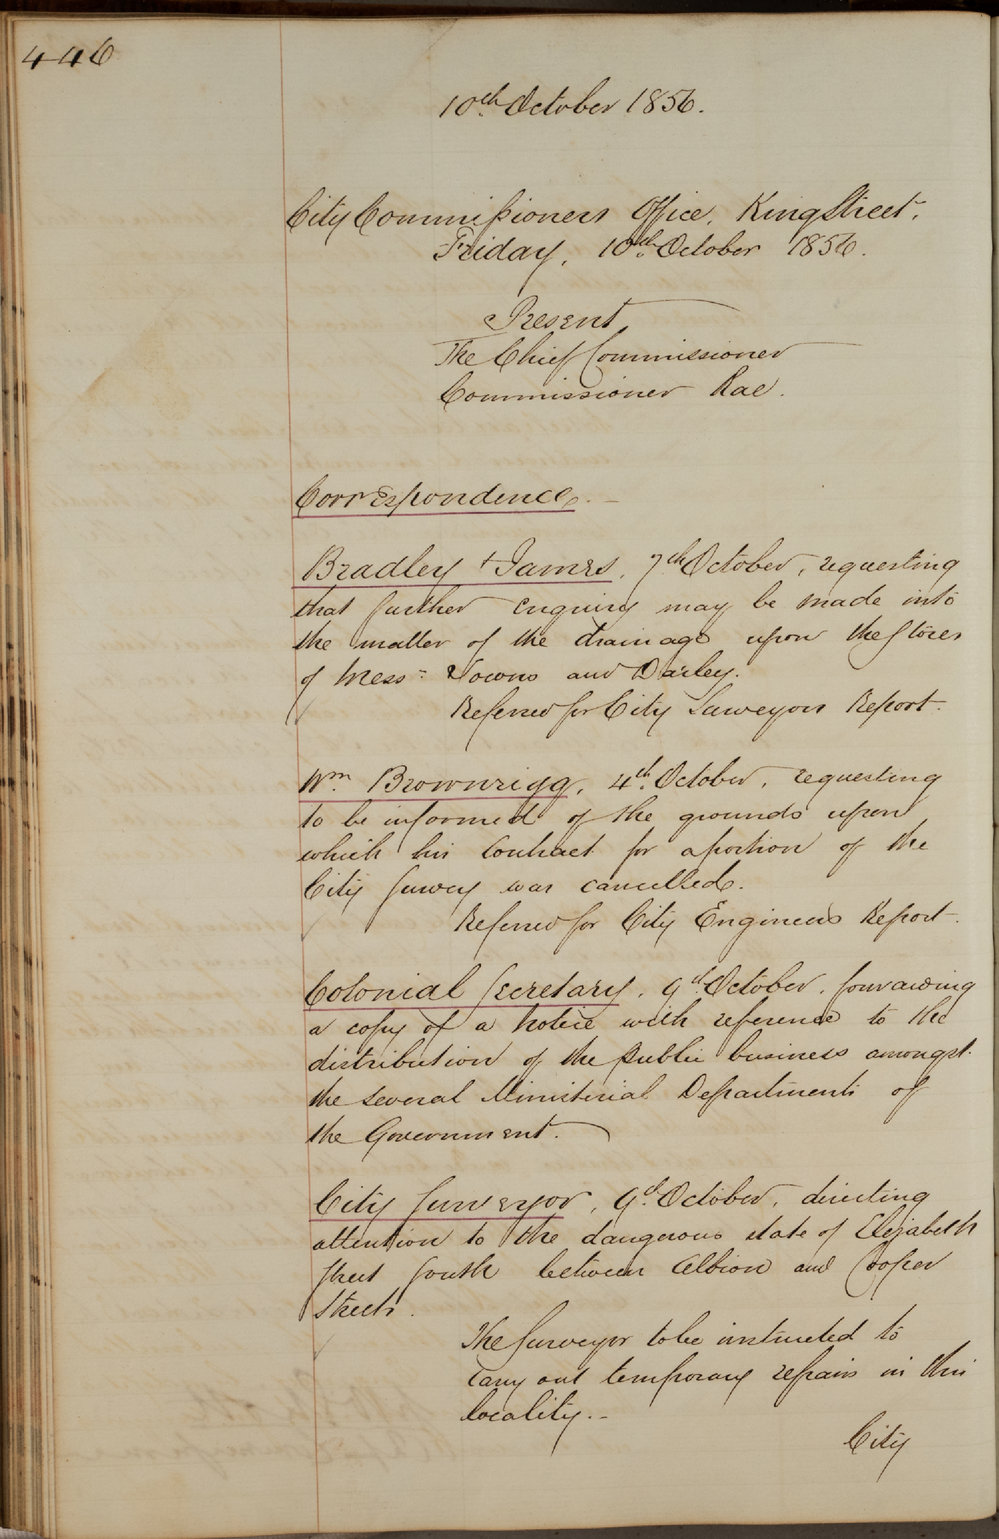 446
10th October 1856.
City Commissioners Office, King Street,
Friday, 10th October 1856.
Present
The Chief Commissioner
Commissioner Rae.
Correspondence. -
Bradley + James, 7th October, requesting
that further enquiry may be made into
the matter of the drainage upon the Stores
of Messrs Towns and Darley.
Referred for City Surveyors Report.
Wm Brownrigg, 4th October, requesting
to be informed of the grounds upon
which his Contract for a portion of the
City Survey was cancelled.
Referred for City Engineers Report.
Colonial Secretary, 9th October, forwarding
a copy of a Notice with reference to the
distribution of the public business amongst
the several Ministerial Departments of
the Government.
City Surveyor, 9th October, directing
attention to the dangerous state of Elizabeth
Street South between Albion and Cooper
Streets.
The Surveyor to be instructed to
carry out temporary repairs in this
locality. -
City